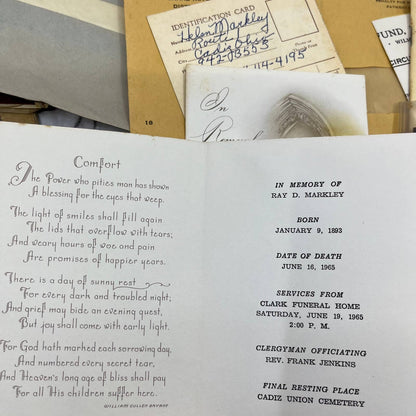 IDENTIFICATION CARD
Name Helen Markley
Address Route 1
Cadiz Ohio
942-03553
114-4195
PENALTY FOR
CIRCU
UND,
WILM
In
Remembr
10
Comfort
The Power who pities man has shown
A blessing for the eyes that weep.
The light of smiles shall fill again
The lids that overflow with tears;
And weary hours of woe and pain
Are promises of happier years.
There is a day of sunny rest
For every dark and troubled night;
And grief may bide an evening guest,
But joy shall come with early light.
For God hath marked each sorrowing day,
And numbered every secret tear,
And Heaven's long age of bliss shall pay
For all His children suffer here.
WILLIAM CULLEN BRYANT
IN MEMORY OF
RAY D. MARKLEY
BORN
JANUARY 9, 1893
DATE OF DEATH
JUNE 16, 1965
SERVICES FROM
CLARK FUNERAL HOME
SATURDAY, JUNE 19, 1965
2:00 P. M.
CLERGYMAN OFFICIATING
REV. FRANK JENKINS
FINAL RESTING PLACE
CADIZ UNION CEMETERY